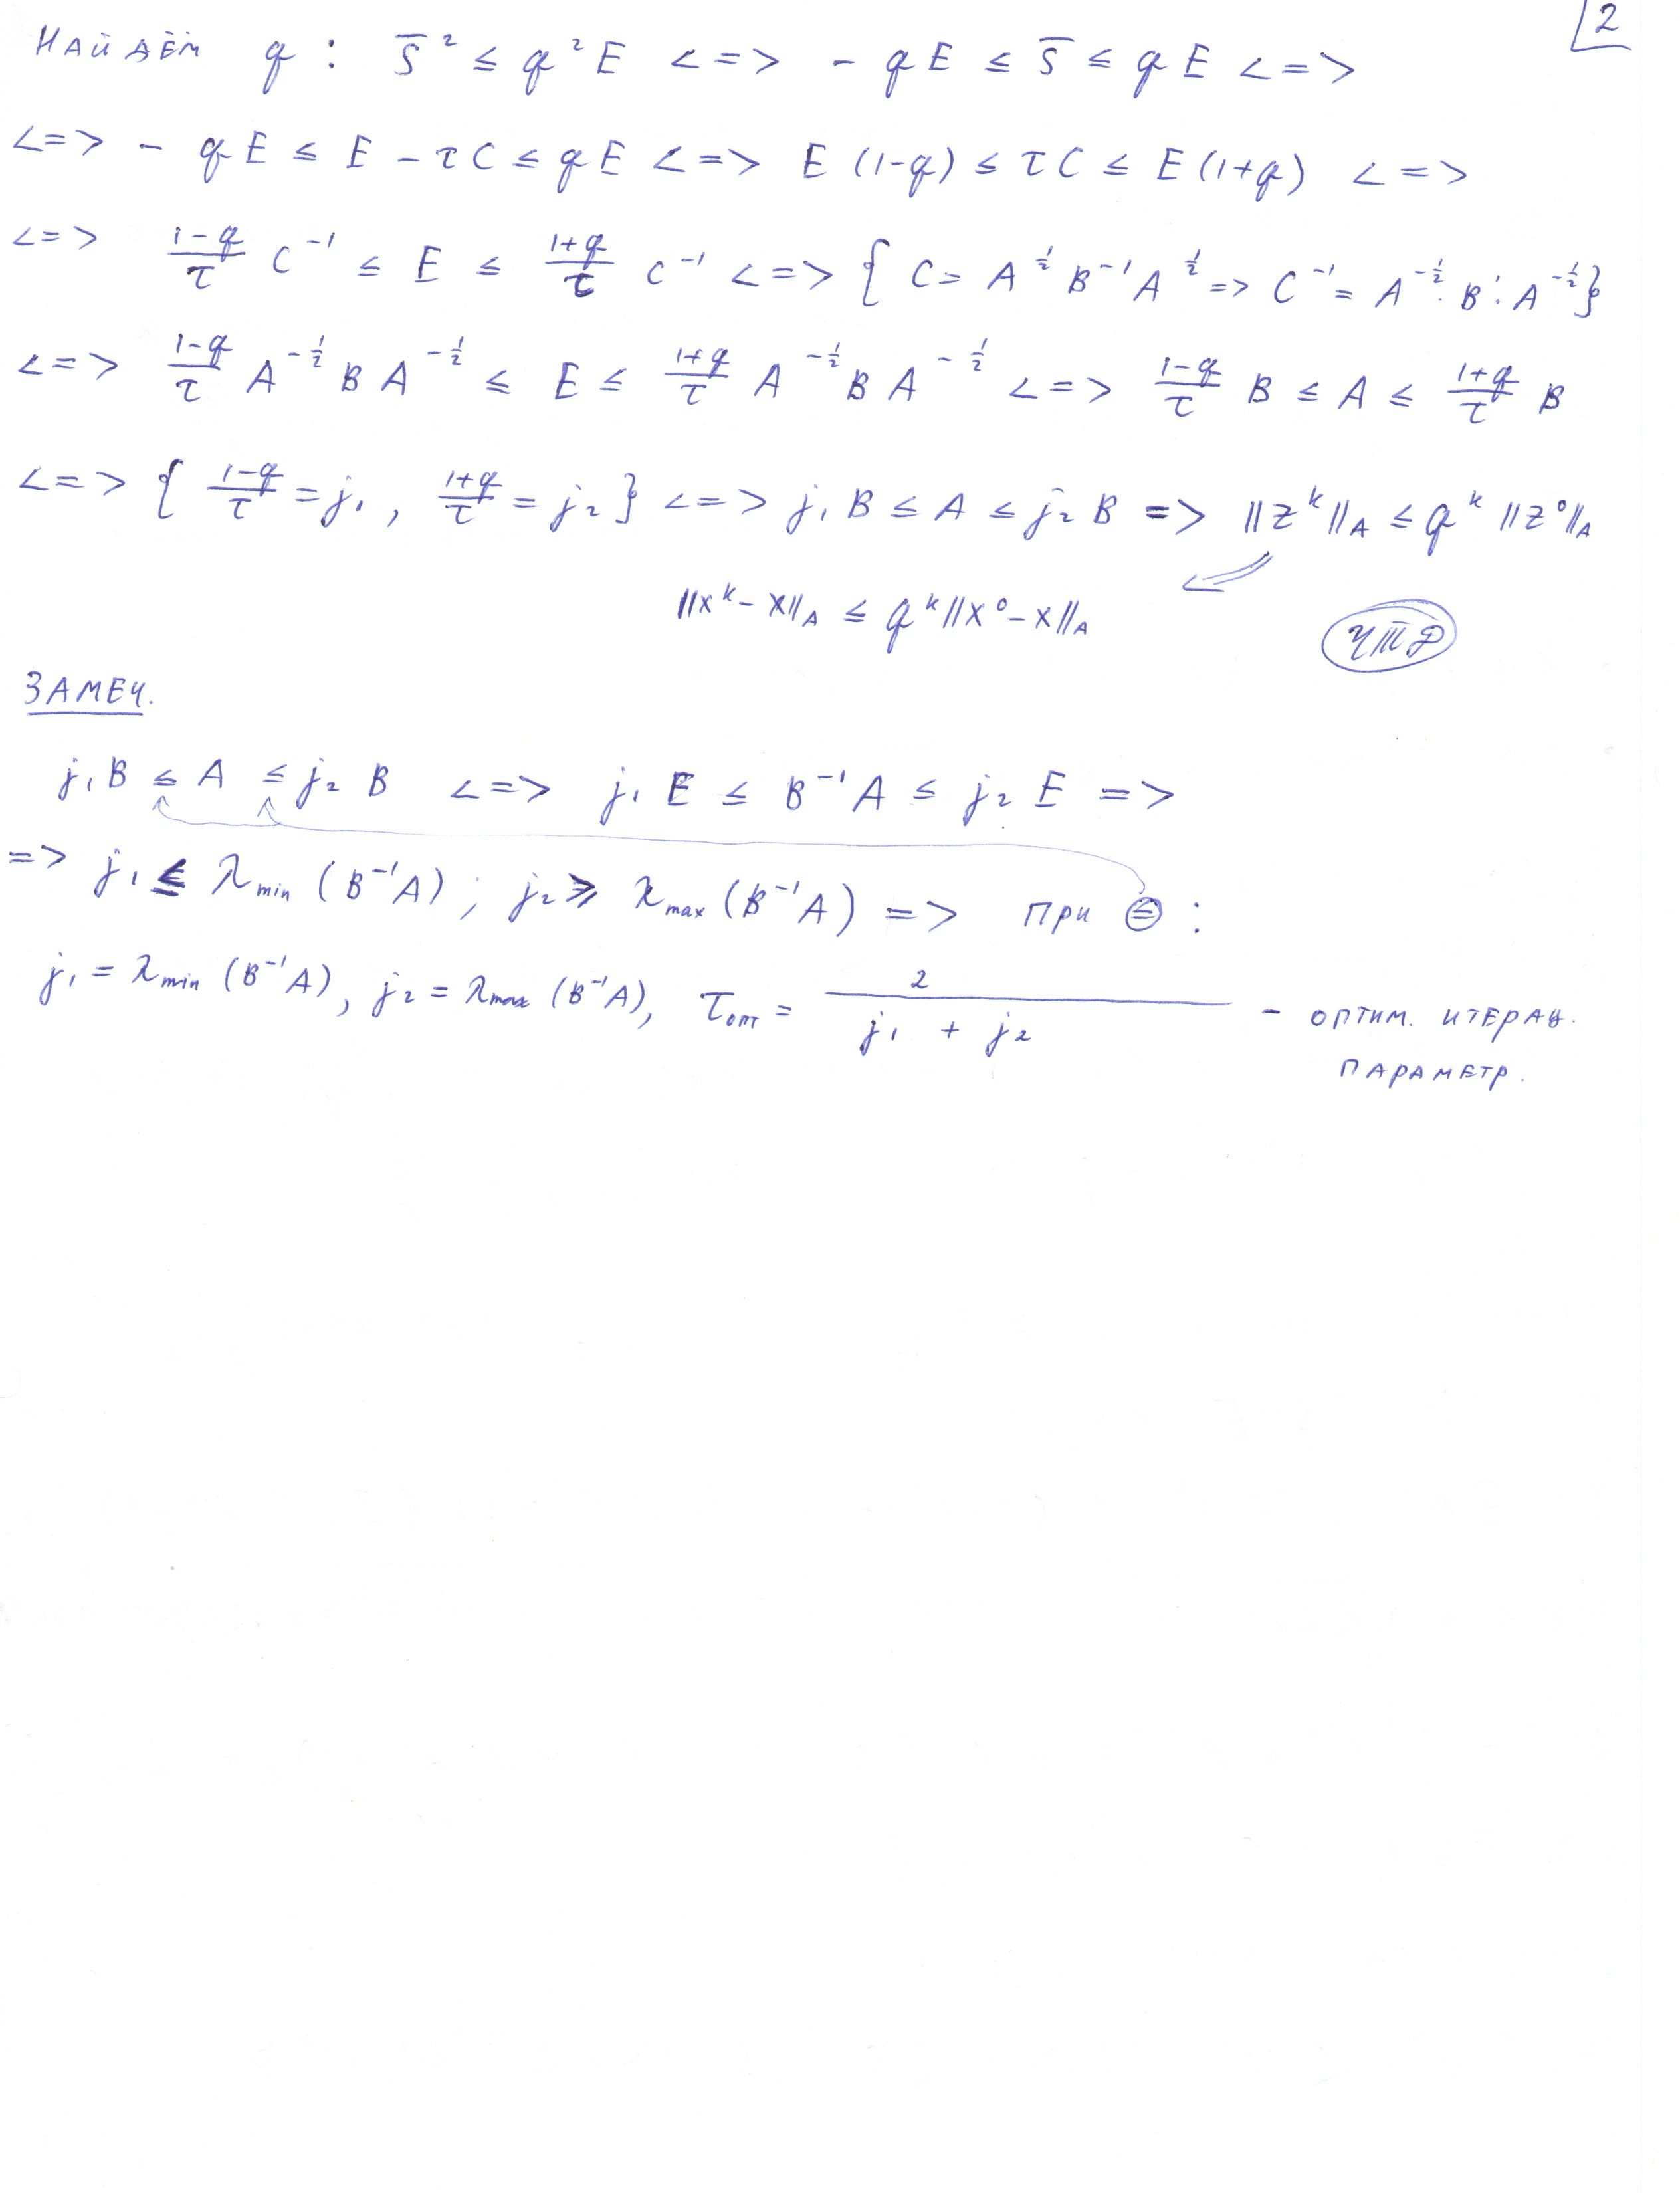 2
НАЙДЁМ q : S̄² ≤ q²E <=> - qE ≤ S̄ ≤ qE <=>
<=> - qE ≤ E - τC ≤ qE <=> E(1-q) ≤ τC ≤ E(1+q) <=>
<=> (1-q)/τ C⁻¹ ≤ E ≤ (1+q)/τ C⁻¹ <=> { C = A^{1/2} B⁻¹ A^{1/2} => C⁻¹ = A^{-1/2} · B · A^{-1/2} }
<=> (1-q)/τ A^{-1/2} B A^{-1/2} ≤ E ≤ (1+q)/τ A^{-1/2} B A^{-1/2} <=> (1-q)/τ B ≤ A ≤ (1+q)/τ B
<=> { (1-q)/τ = j₁, (1+q)/τ = j₂ } <=> j₁B ≤ A ≤ j₂B => ||z^k||_A ≤ q^k ||z⁰||_A
||x^k - x||_A ≤ q^k ||x⁰ - x||_A
ЧТД
ЗАМЕЧ.
j₁B ≤ A ≤ j₂B <=> j₁E ≤ B⁻¹A ≤ j₂E =>
=> j₁ ≤ λmin (B⁻¹A) ; j₂ ≥ λmax (B⁻¹A) => при = :
j₁ = λmin (B⁻¹A), j₂ = λmax (B⁻¹A), τопт = 2/(j₁ + j₂) - оптим. итерац.
ПАРАМЕТР.